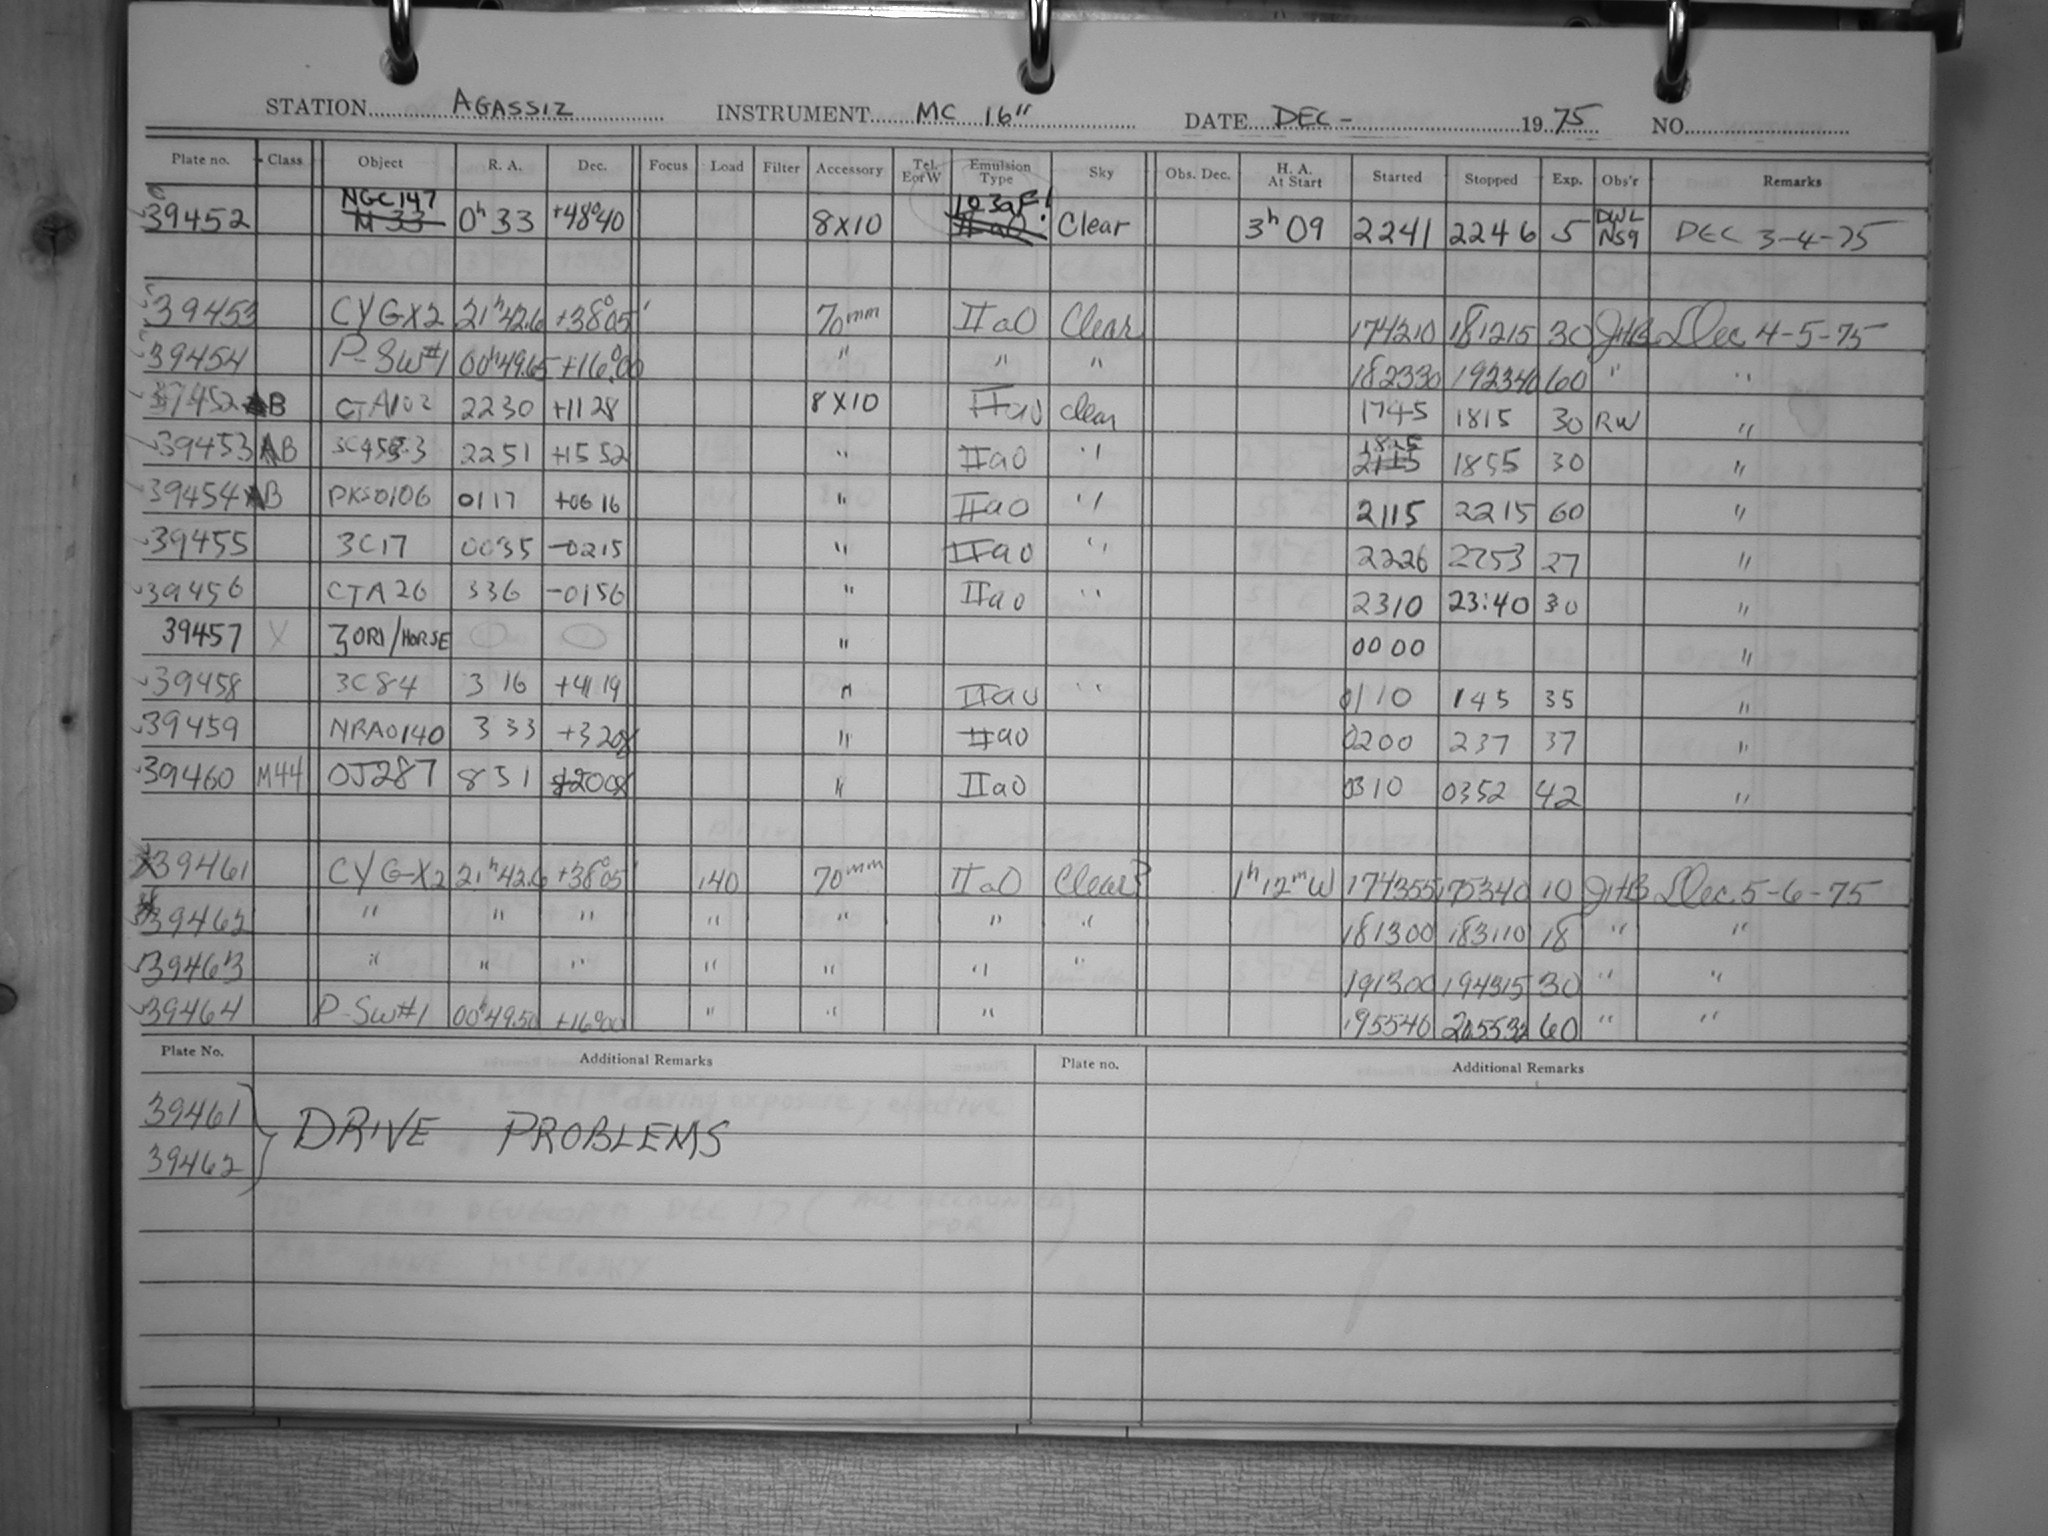 STATION AGASSIZ INSTRUMENT MC 16" DATE DEC - 1975 NO.
Plate no. Class Object R. A. Dec. Focus Load Filter Accessory Tel. E or W Emulsion Type Sky Obs. Dec. H. A. At Start Started Stopped Exp. Obs'r Remarks
NGC 147 103aF!
39452 M 33 0h 33 +48°40 8X10 IIaO Clear 3h 09 2241 2246 5 DWL DEC 3-4-75
39453 CYGX2 21h42.6 +38°05' 70mm IIaO Clear 174210 181215 30 JHB Dec 4-5-75
39454 P-Sw#1 00h49.65 +16°00 " " " 182330 192340 60 " "
B CTA102 2230 +1128 8X10 IIaO clear 1745 1815 30 RW "
39453 AB 2251 +1552 " IIaO " 1825 2115 1855 30 "
39454 AB PKS0106 0117 +0616 " IIaO " 2115 2215 60 "
39455 3C17 0035 -0215 " IIaO " 2226 2253 27 "
39456 CTA26 336 -0156 " IIaO " 2310 23:40 30 "
39457 X ζORI/HORSE " 0000 "
39458 3C84 3 16 +4119 " IIaO " 0110 145 35 "
39459 NRAO140 3 33 +3208 " IIaO 0200 237 37 "
39460 M44 OJ287 8 51 +2008 " IIaO 0310 0352 42 "
39461 CYG-X2 21h42.6 +38°05' 140 70mm IIaO Clear? 1h12mW 174355 175340 10 JHB Dec. 5-6-75
39462 " " " " " " " 181300 183110 18 " "
39463 " " " " " " " 191300 194315 30 " "
39464 P-Sw#1 00h49.50 +16°00 " " " 195540 205532 60 " "
Plate No. Additional Remarks Plate no. Additional Remarks
39461
DRIVE PROBLEMS
39462